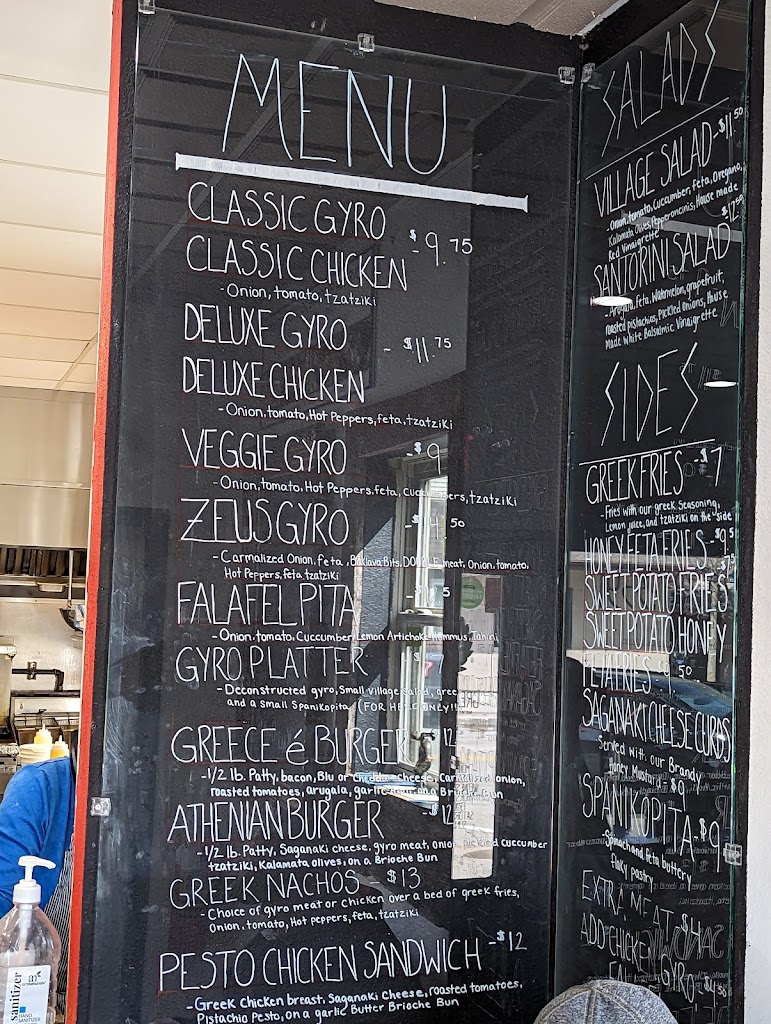 MENU
CLASSIC GYRO
- $9.75
CLASSIC CHICKEN
- Onion, tomato, tzatziki
DELUXE GYRO
- $11.75
DELUXE CHICKEN
- Onion, tomato, Hot Peppers, feta, tzatziki
VEGGIE GYRO - $9
- Onion, tomato, Hot Peppers, feta, Cuccumbers, tzatziki
ZEUS GYRO
- Carmalized Onion, feta, Baklava Bits, meat, Onion, tomato,
Hot Peppers, feta, tzatziki
FALAFEL PITA
- Onion, tomato, Cuccumber, Lemon Artichoke Hummus, Tahini
GYRO PLATTER
- Deconstructed gyro, Small village salad,
and a small Spanikopita (FOR HERE ONLY!!
GREECE é BURGER - 12
- 1/2 lb. Patty, bacon, Blu or Cheddar cheese, Carmalized onion,
roasted tomatoes, arugala, garlic aioli, on a Brioche Bun
ATHENIAN BURGER - $12
- 1/2 lb. Patty, Saganaki cheese, gyro meat, onion, pickled cuccumber
tzatziki, Kalamata olives, on a Brioche Bun
GREEK NACHOS $13
- Choice of gyro meat or chicken over a bed of greek fries,
Onion, tomato, Hot peppers, feta, tzatziki
PESTO CHICKEN SANDWICH - $12
- Greek chicken breast, Saganaki cheese, roasted tomatoes,
Pistachio Pesto, on a garlic Butter Brioche Bun
SALADS
VILLAGE SALAD - $11.50
- Onion, tomato, Cucumber, feta, Oregano,
Kalamata Olives, Pepperoncinis, House made
Red Vinaigrette
SANTORINI SALAD $12.50
- Arugula, feta, Watermelon, grapefruit,
roasted pistachios, pickled Onions, House
Made White Balsalmic Vinaigrette
SIDES
GREEK FRIES - $7
- Fries with our greek Seasoning,
Lemon juice, and tzatziki on the side
HONEY FETA FRIES
SWEET POTATO FRIES
SWEET POTATO HONEY
FETA FRIES
SAGANAKI CHEESE CURDS
Served with our Brandy
Honey Mustard - $9
SPANIKOPITA - $9
- Spinach and feta buttery
flaky pastry
EXTRA MEAT - $4
ADD CHICKEN
GYRO
sanitizer
HAND
SANITIZER